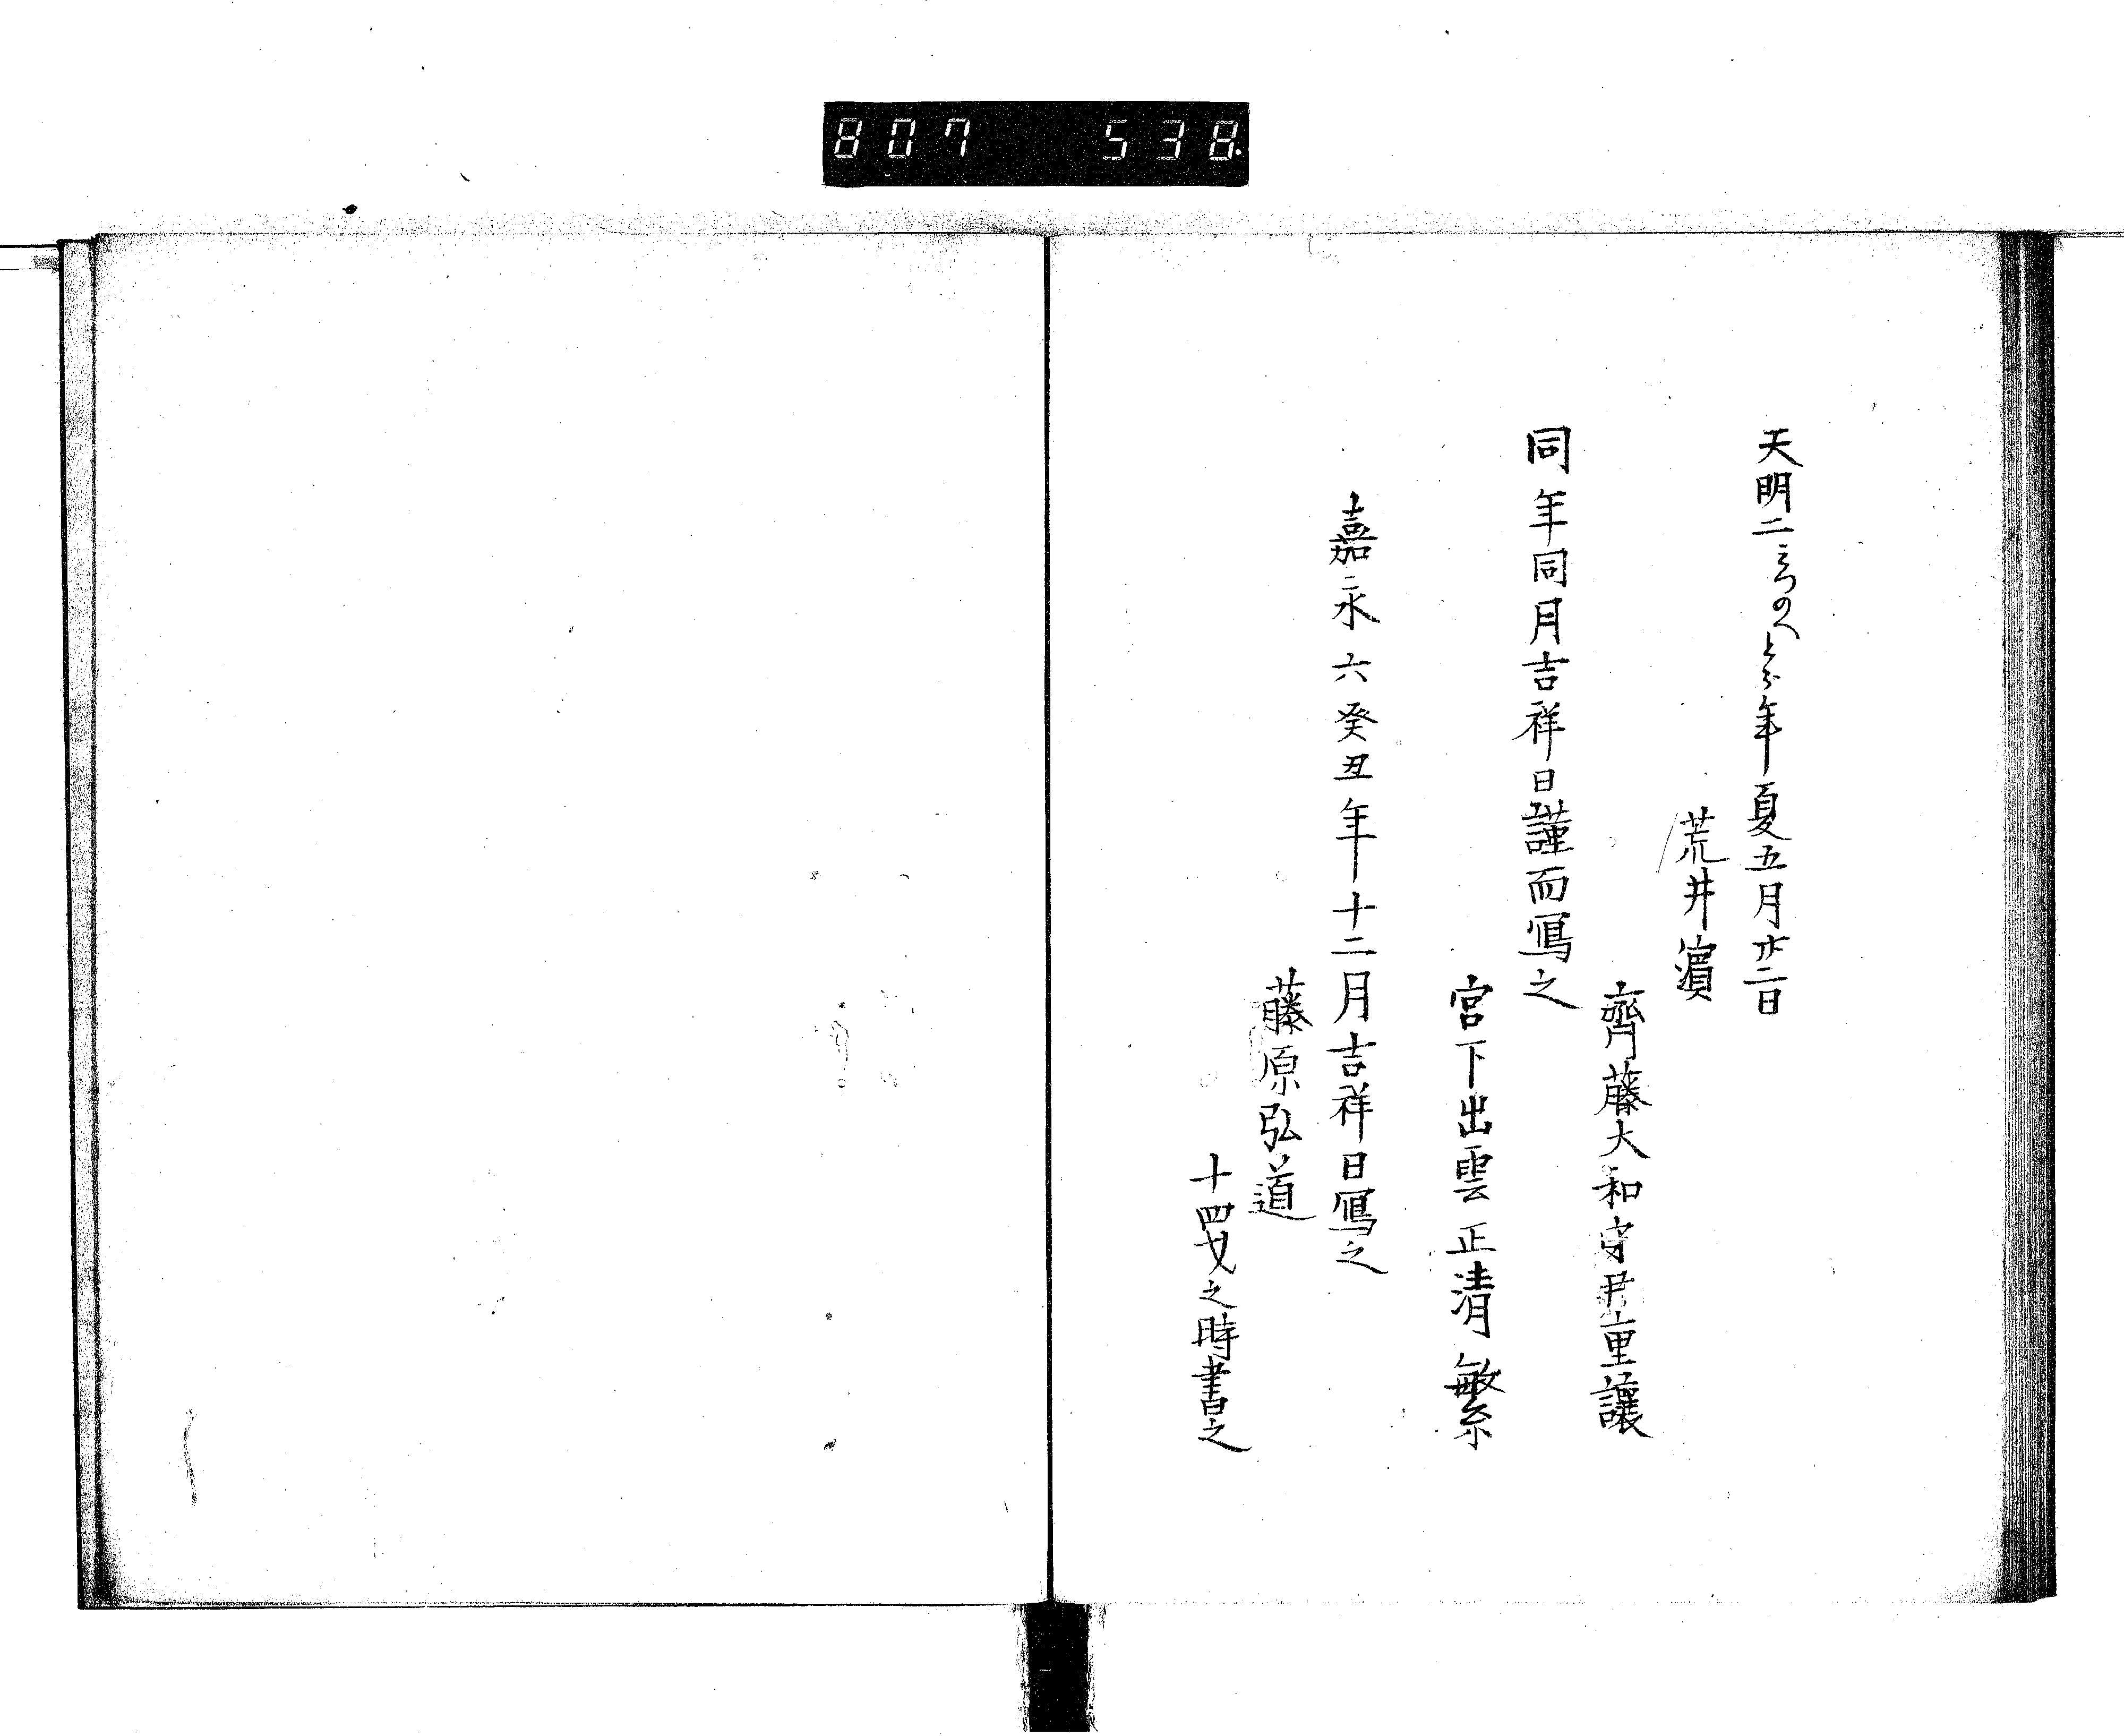 807 538.
天明二みづのへとら年夏五月廿二日
荒井濵
齊藤大和守尹重讓
同年同月吉祥日謹而寫之
宮下出雲正清繁
嘉永六癸丑年十二月吉祥日寫之
藤原弘道
十四才之時書之